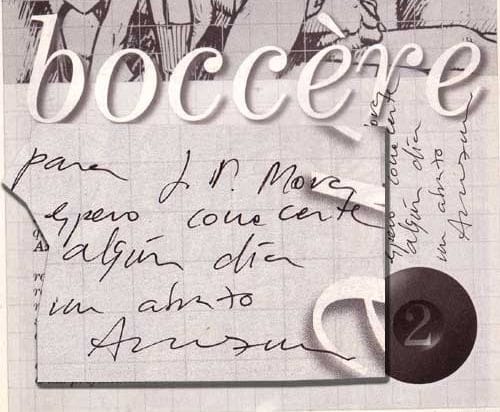 boccère
para J. P. Mora
espero conocerte
algún día
un abrazo
espero conocerte
algún día
un abrazo
2